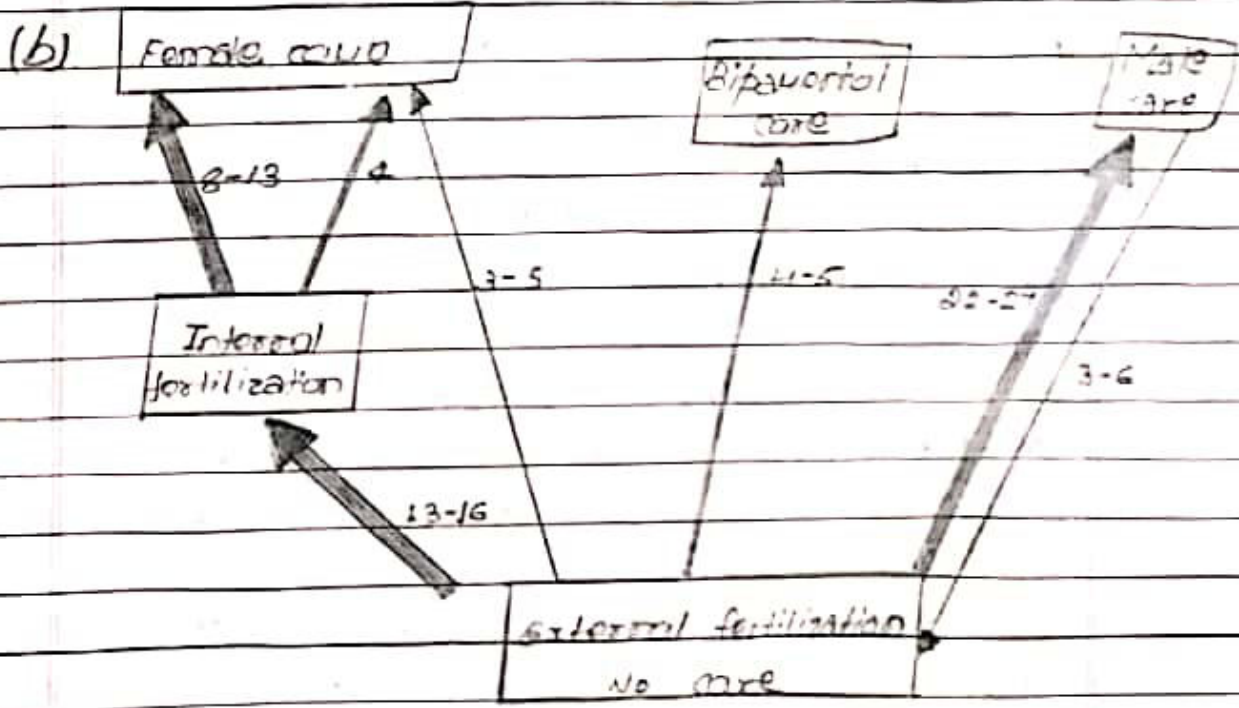 (b)
Female care
Biparental
care
Male
care
8-13
4
3-5
4-5
3-6
Internal
fertilization
13-16
External fertilization
No care